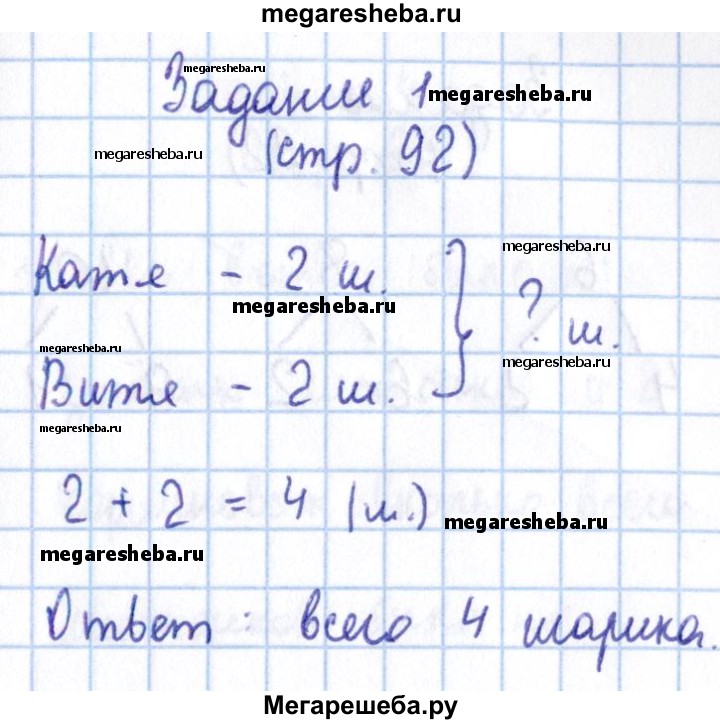 megaresheba.ru
megaresheba.ru
Задание 1
megaresheba.ru
megaresheba.ru
(стр. 92)
Катя - 2 ш.
megaresheba.ru
megaresheba.ru
? ш.
megaresheba.ru
megaresheba.ru
Витя - 2 ш.
megaresheba.ru
2 + 2 = 4 (ш.)
megaresheba.ru
megaresheba.ru
Ответ: всего 4 шарика.
Мегарешеба.ру